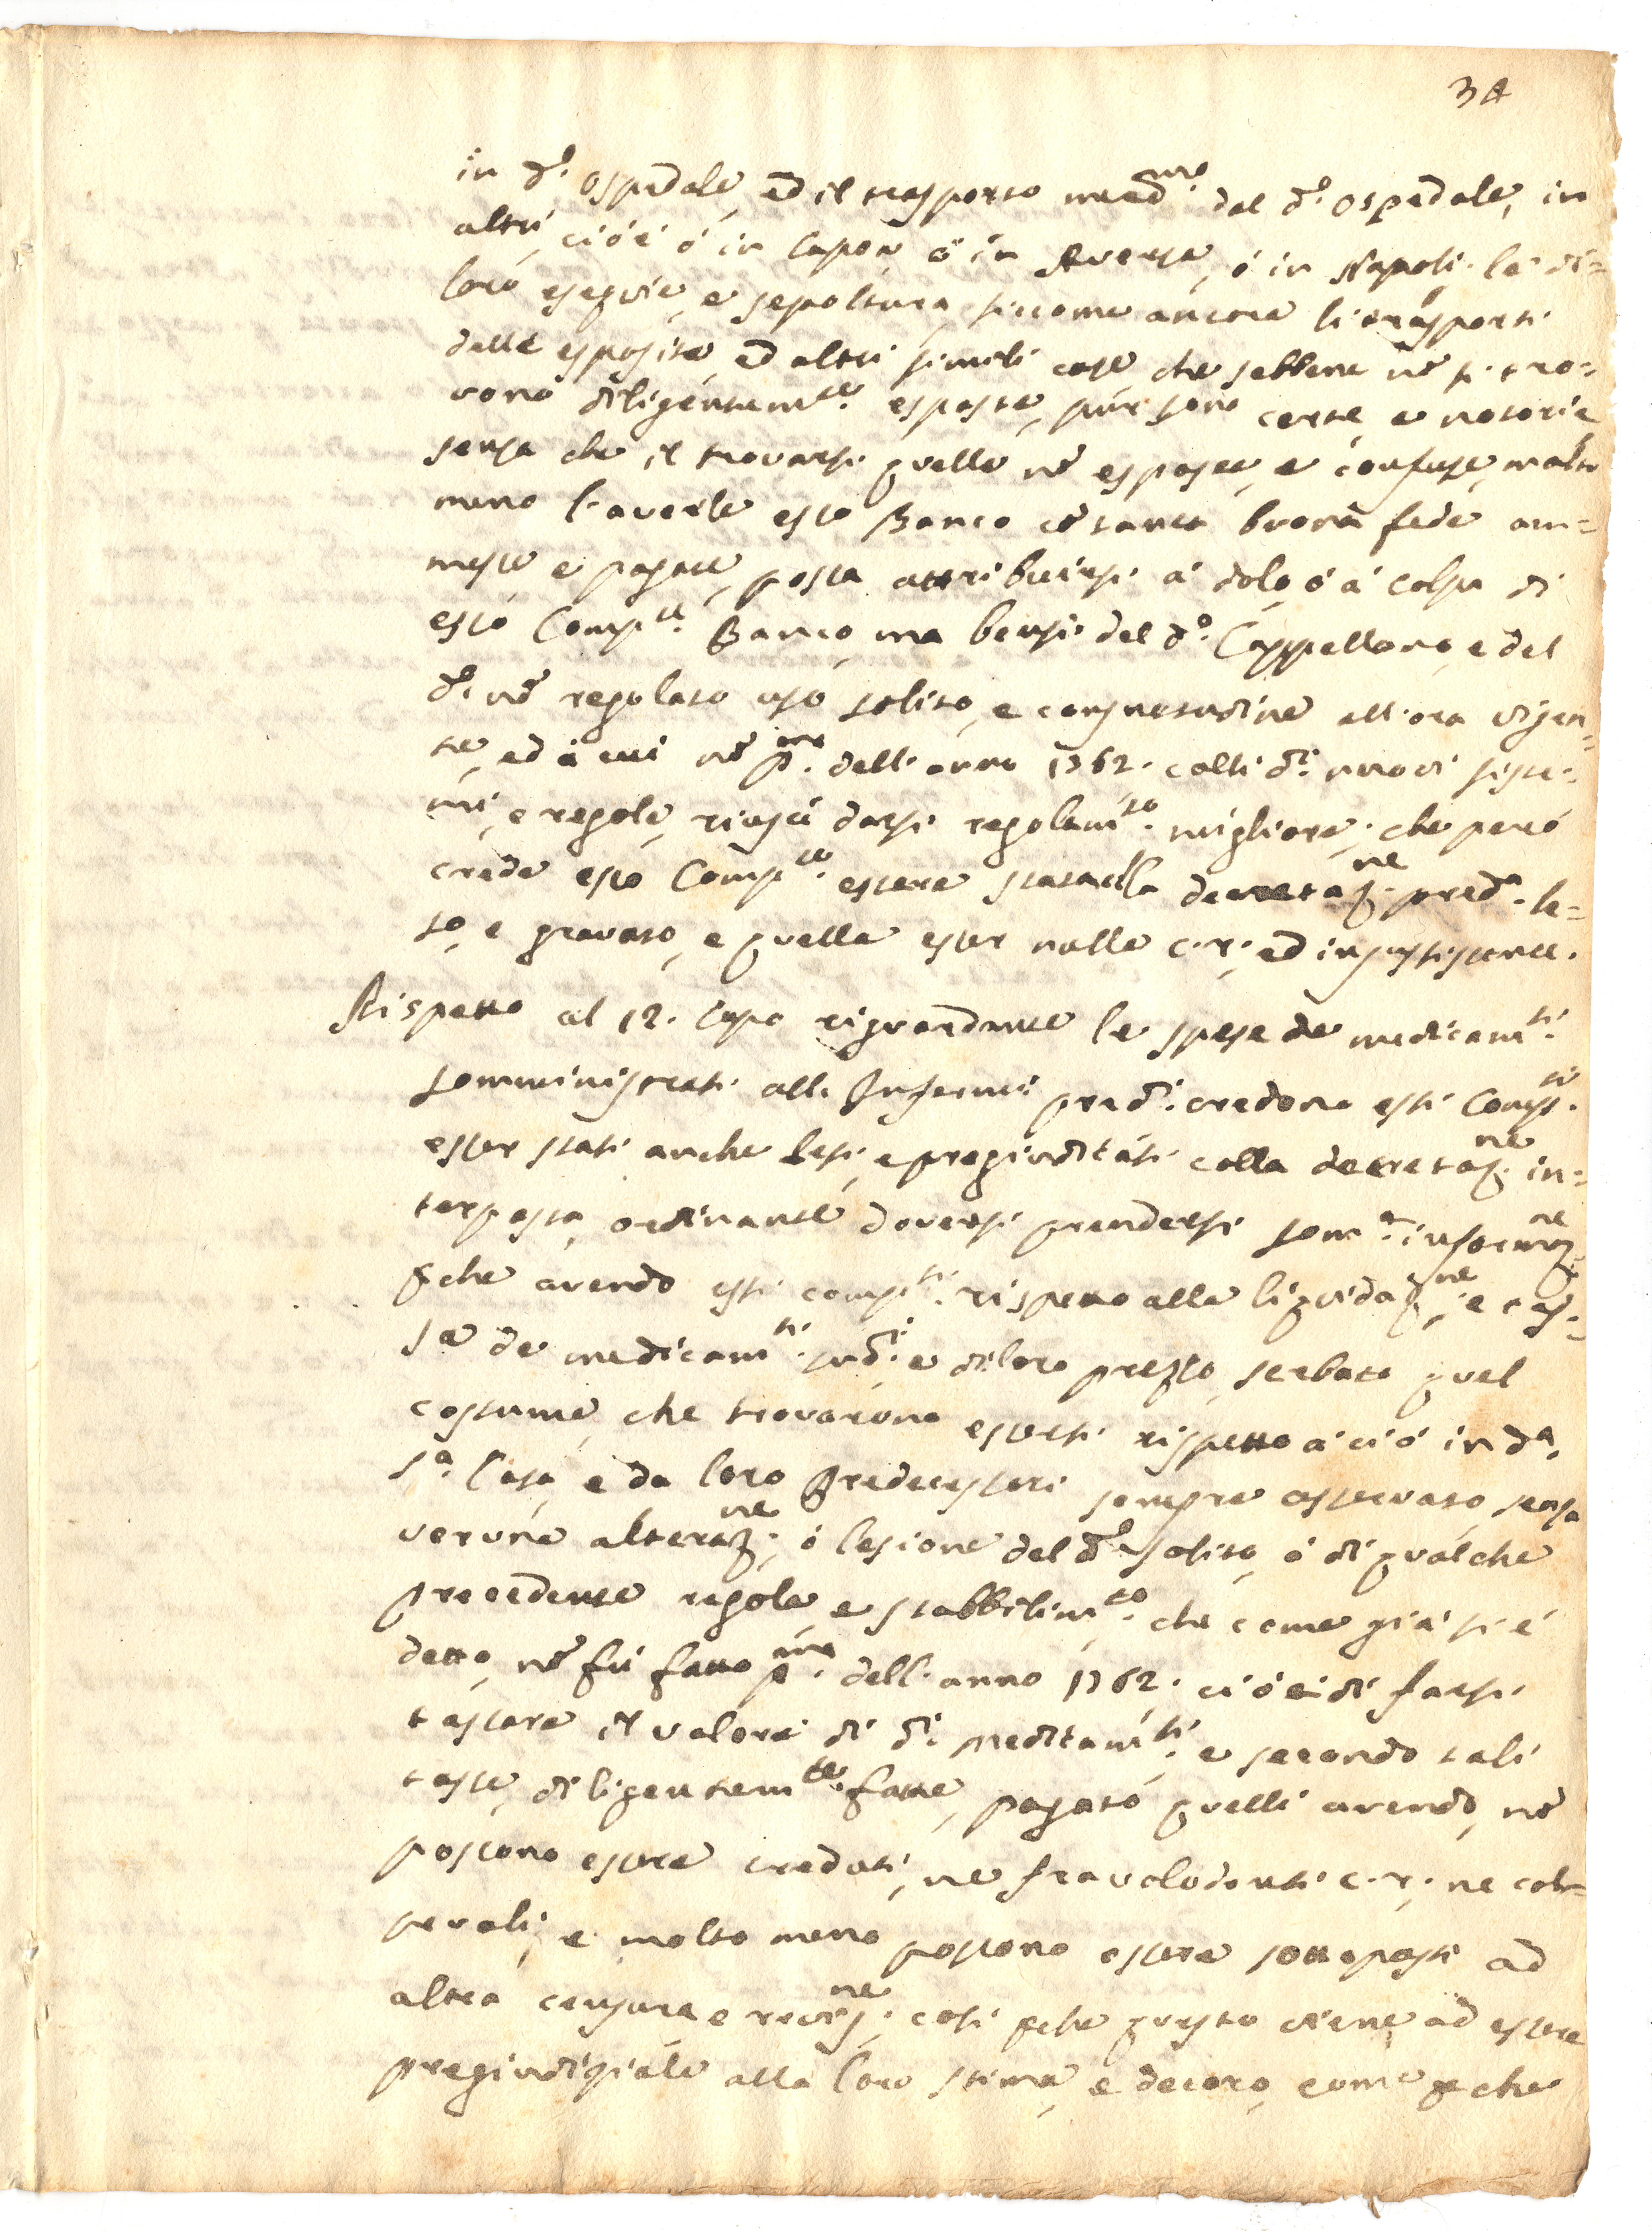 34
in d.º Ospedale, ed il trasporto med.mo dal d.º Ospedale, in
altri, cióé ó in Capoa ó in Aversa, ó in Napoli, le di=
loro esequie, e sepoltura, siccome ancora li trasporti
delle esposite, ed altri simili cose, che sebbene nõ si tro=
vono diligentem.te esposte, pur sono certe, e notorie
senza che il trovarsi quelle nõ esposte, e confuse, molto
meno l'averle esso Banco cõ tanta buona fede am=
messe e pagate, possa attribuirsi á dolo, ó á colpa di
esso Comp.te Banco, ma bensi del d.º Cappellano, e del
d.º nõ regolato uso solito, e consuetudine all'ora vigen=
te, ed á cui nõ p.ma dell'anno 1762. colli d.i nuovi siste=
mi, e regole, riuscì darsi regolam.to migliore; che peró
crede esso Comp.te essere stato colla decretaz.ne pred.a le=
so, e gravato, e quella esser nulla c.r; ed insussistente.
Rispetto al 12. Capo riguardante le spese de medicam.ti
somministrati alli Infermi pred.i credono essi Comp.ti
esser stati anche lesi, e pregiuditati colla decretaz.ne in=
terposta, ordinante doversi prendersi som.a informaz.ne
p̃che avendo essi comp.ti rispetto alla liquidaz.ne, e tas=
sa de medicam.ti sud.i, e diloro prezzo, serbato quel
costume, che trovarono essersi rispetto á ció in d.a
S.a Casa, e da loro Predecessori sempre osservato, senza
veruna alteraz.ne, ó lesione del d.º solito, ó di qualche
precedente regola, e stabbilim.to che come giá si é
detto, nõ fú fatto p.ma dell'anno 1762. ció é di farsi
tassare il valore di d.i meditam.ti, e secondo tali
tasse, diligentem.te fatte, pagato quelli avendo, nõ
possono essere creduti, ne fraudolenti c.r; ne col=
pevoli; e molto meno possono essere sottoposti ad
altra censura e revis.ne; cosi p̃che questo viene ad essere
pregiudiziale alla loro stima, e decoro, come p̃che